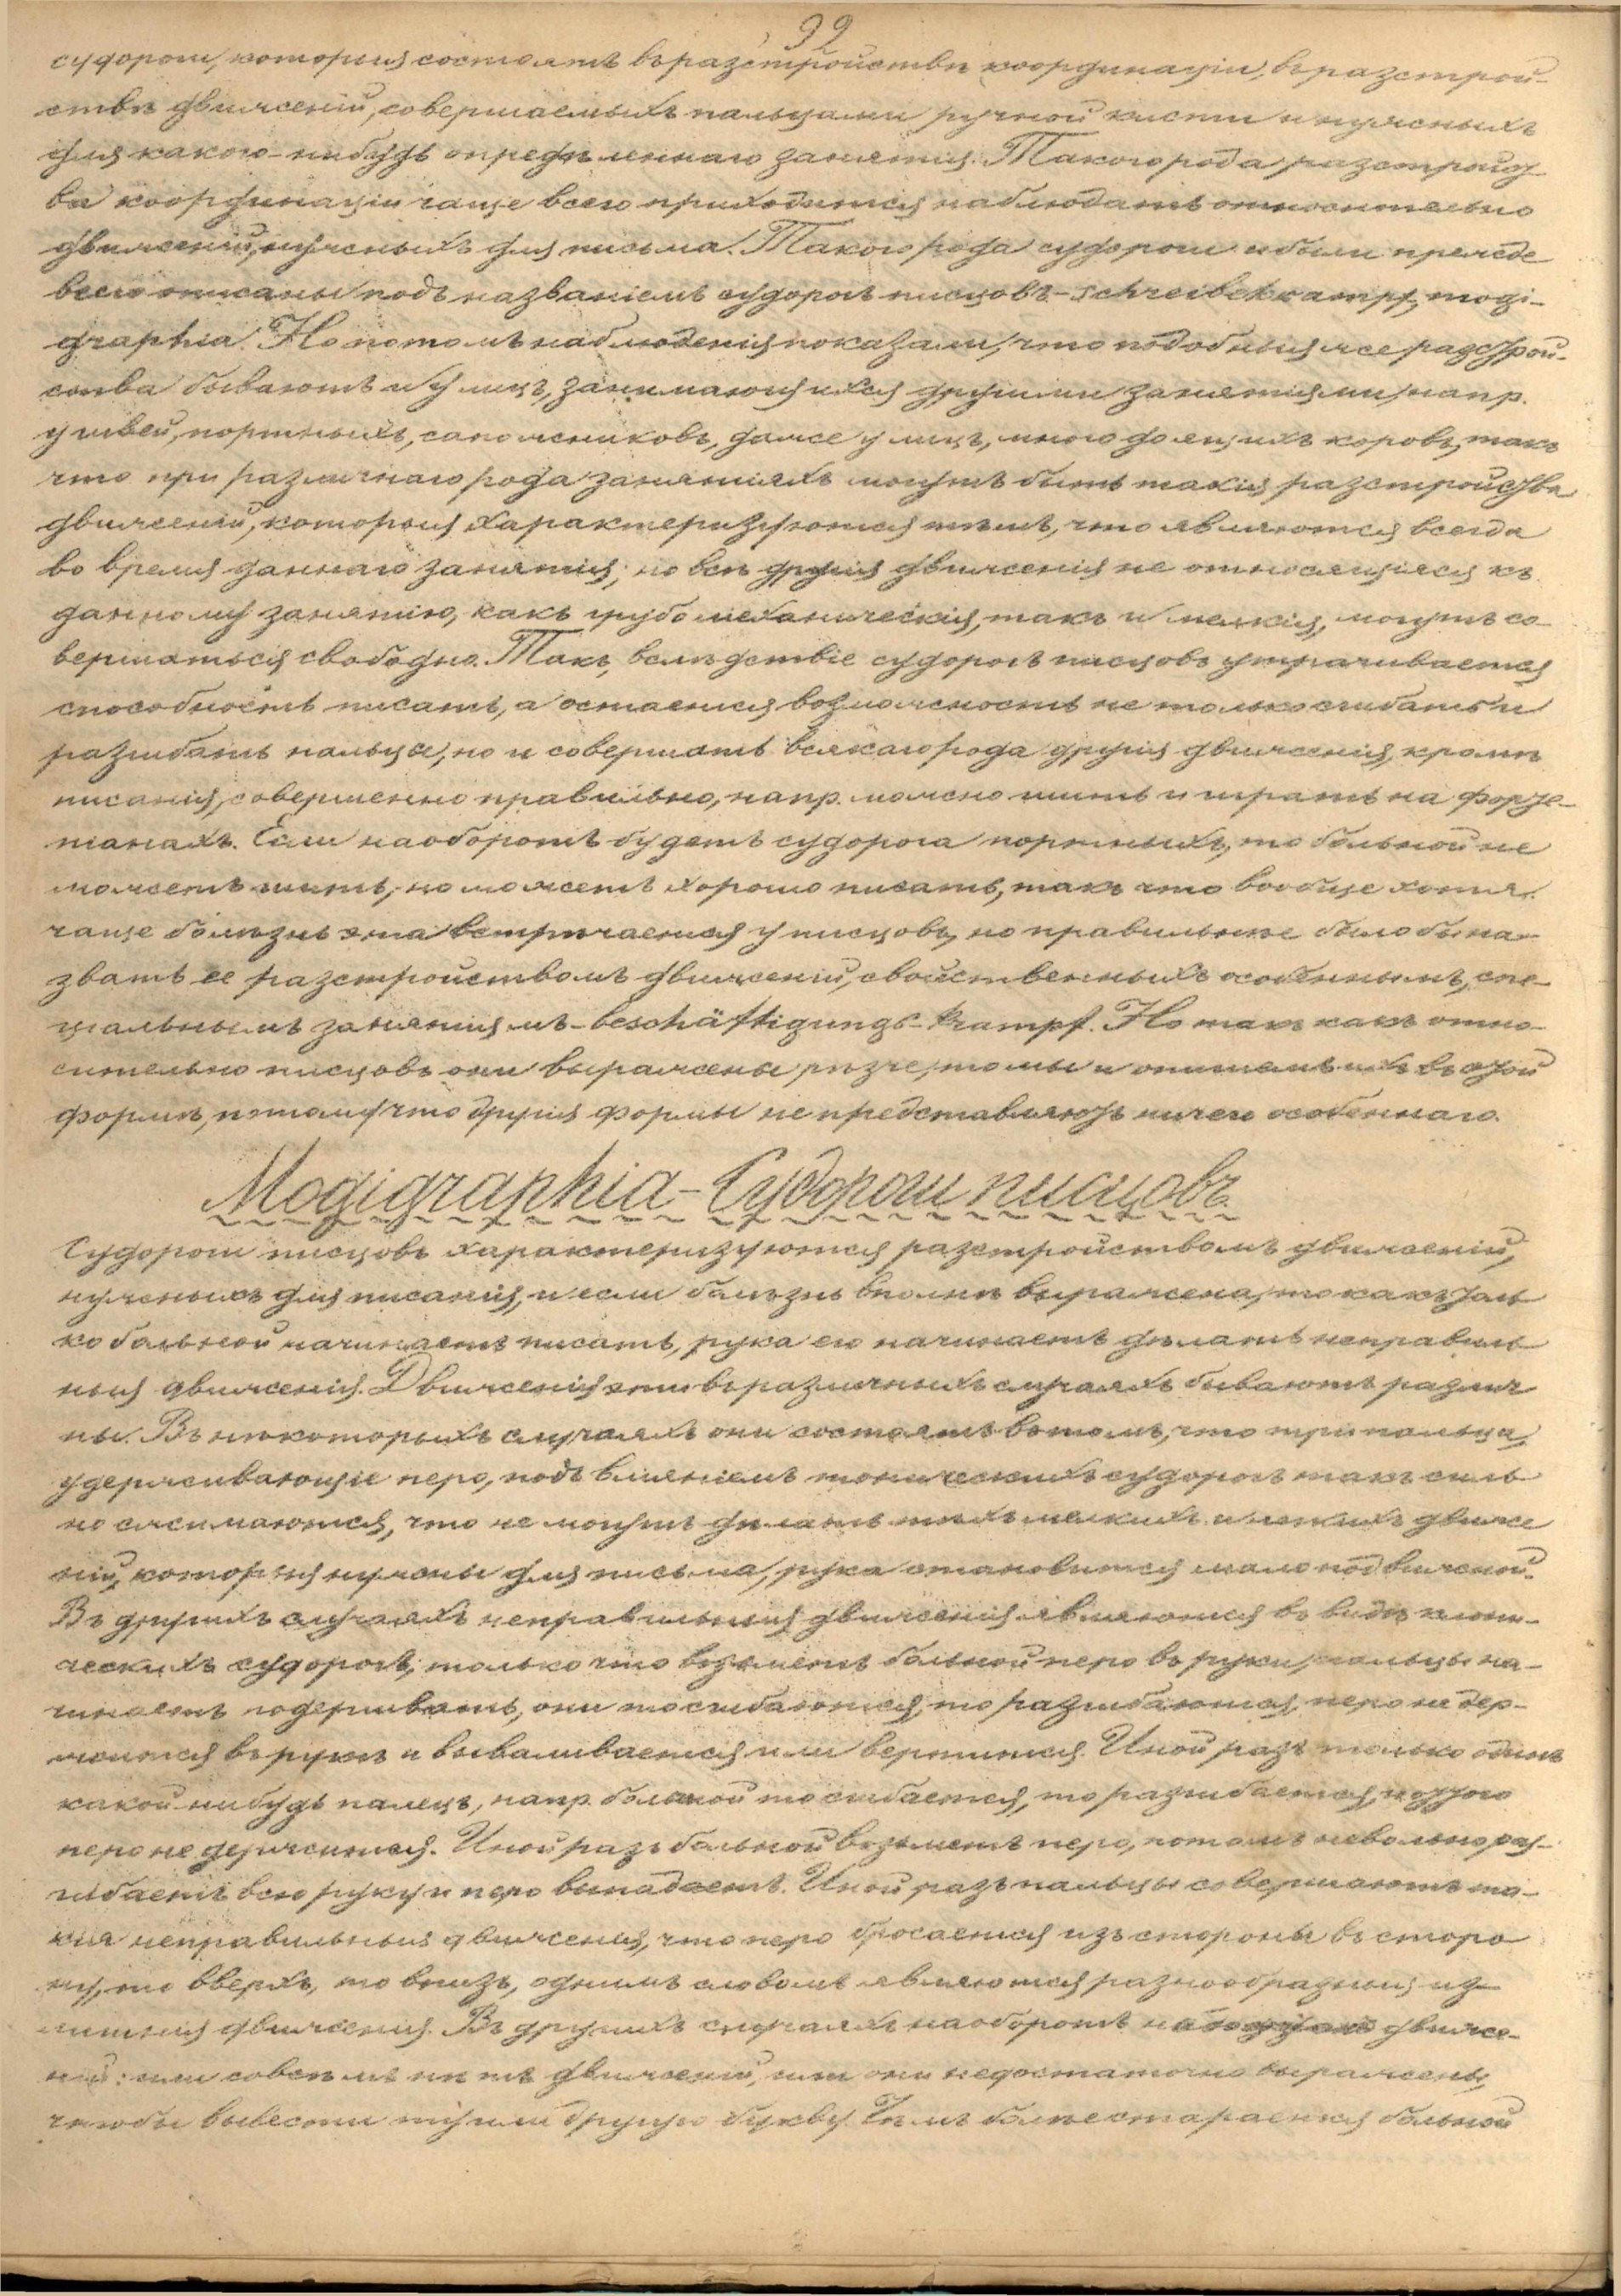 99
судороги, которыя состоятъ въ разстройствѣ координаціи, въ разстрой-
ствѣ движеній, совершаемыхъ пальцами ручной кисти и нужныхъ
для какого-нибудь опредѣленнаго занятія. Такого рода разстройст-
ва координаціи чаще всего приходится наблюдать относительно
движеній, нужныхъ для письма. Такого рода судороги и были прежде
всего описаны подъ названіемъ судорогъ писцовъ - Schreibekrampf, mogi-
graphia. Но потомъ наблюденія показали, что подобныя же разстрой-
ства бываютъ и у лицъ, занимающихся другими занятіями, напр.
у швей, портныхъ, сапожниковъ, даже у лицъ, много доящихъ коровъ, такъ
что при различнаго рода занятіяхъ могутъ быть такія разстройства
движеній, которыя характеризуются тѣмъ, что являются всегда
во время даннаго занятія; но всѣ другія движенія не относящіяся къ
данному занятію, какъ грубо механическія, такъ и мелкія, могутъ со-
вершаться свободно. Такъ, вслѣдствіе судорогъ писцовъ утрачивается
способность писать, а остается возможность не только сгибать и
разгибать пальцы, но и совершать всякаго рода другія движенія, кромѣ
писанія, совершенно правильно, напр. можно шить и играть на форте-
піанахъ. Если наоборотъ будетъ судорога портныхъ, то больной не
можетъ шить, но можетъ хорошо писать, такъ что вообще хотя
чаще болѣзнь эта встрѣчается у писцовъ, но правильнѣе было бы на-
звать ее разстройствомъ движеній, свойственныхъ особеннымъ, спе-
ціальнымъ занятіямъ - beschäftigungs-Krampf. Но такъ какъ отно-
сительно писцовъ они выражены рѣзче, то мы и опишемъ ихъ въ этой
формѣ, потому что другія формы не представляютъ ничего особеннаго.
Mogigraphia - Судороги писцовъ.
Судороги писцовъ характеризуются разстройствомъ движеній,
нужныхъ для писанія, и если болѣзнь вполнѣ выражена, то какъ толь
ко больной начинаетъ писать, рука его начинаетъ дѣлать неправиль
ныя движенія. Движенія эти въ различныхъ случаяхъ бываютъ различ
ны. Въ нѣкоторыхъ случаяхъ они состоятъ въ томъ, что три пальца,
удерживающіе перо, подъ вліяніемъ тоническихъ судорогъ такъ силь
но сжимаются, что не могутъ дѣлать тѣхъ мелкихъ и легкихъ движе
ній, которыя нужны для письма, рука становится мало подвижной.
Въ другихъ случаяхъ неправильныя движенія являются въ видѣ клони-
ческихъ судорогъ, только что возьметъ больной перо въ руки, пальцы на-
чинаетъ подергивать, они то сгибаются, то разгибаются, перо не дер-
жится въ рукѣ и вываливается или вертится. Иной разъ только одинъ
какой-нибудь палецъ, напр. большой то сгибается, то разгибается, и отъ этого
перо не держится. Иной разъ больной возьметъ перо, потомъ невольно раз-
гибаетъ всю руку и перо выпадаетъ. Иной разъ пальцы совершаютъ та-
кія неправильныя движенія, что перо бросается изъ стороны въ сторо
ну, то вверхъ, то внизъ, однимъ словомъ являются разнообразныя из-
лишнія движенія. Въ другихъ случаяхъ наоборотъ движе-
ній: или совсѣмъ нѣтъ движеній, или они недостаточно выражены,
чтобы вывести ту или другую букву. Чѣмъ болѣе старается больной